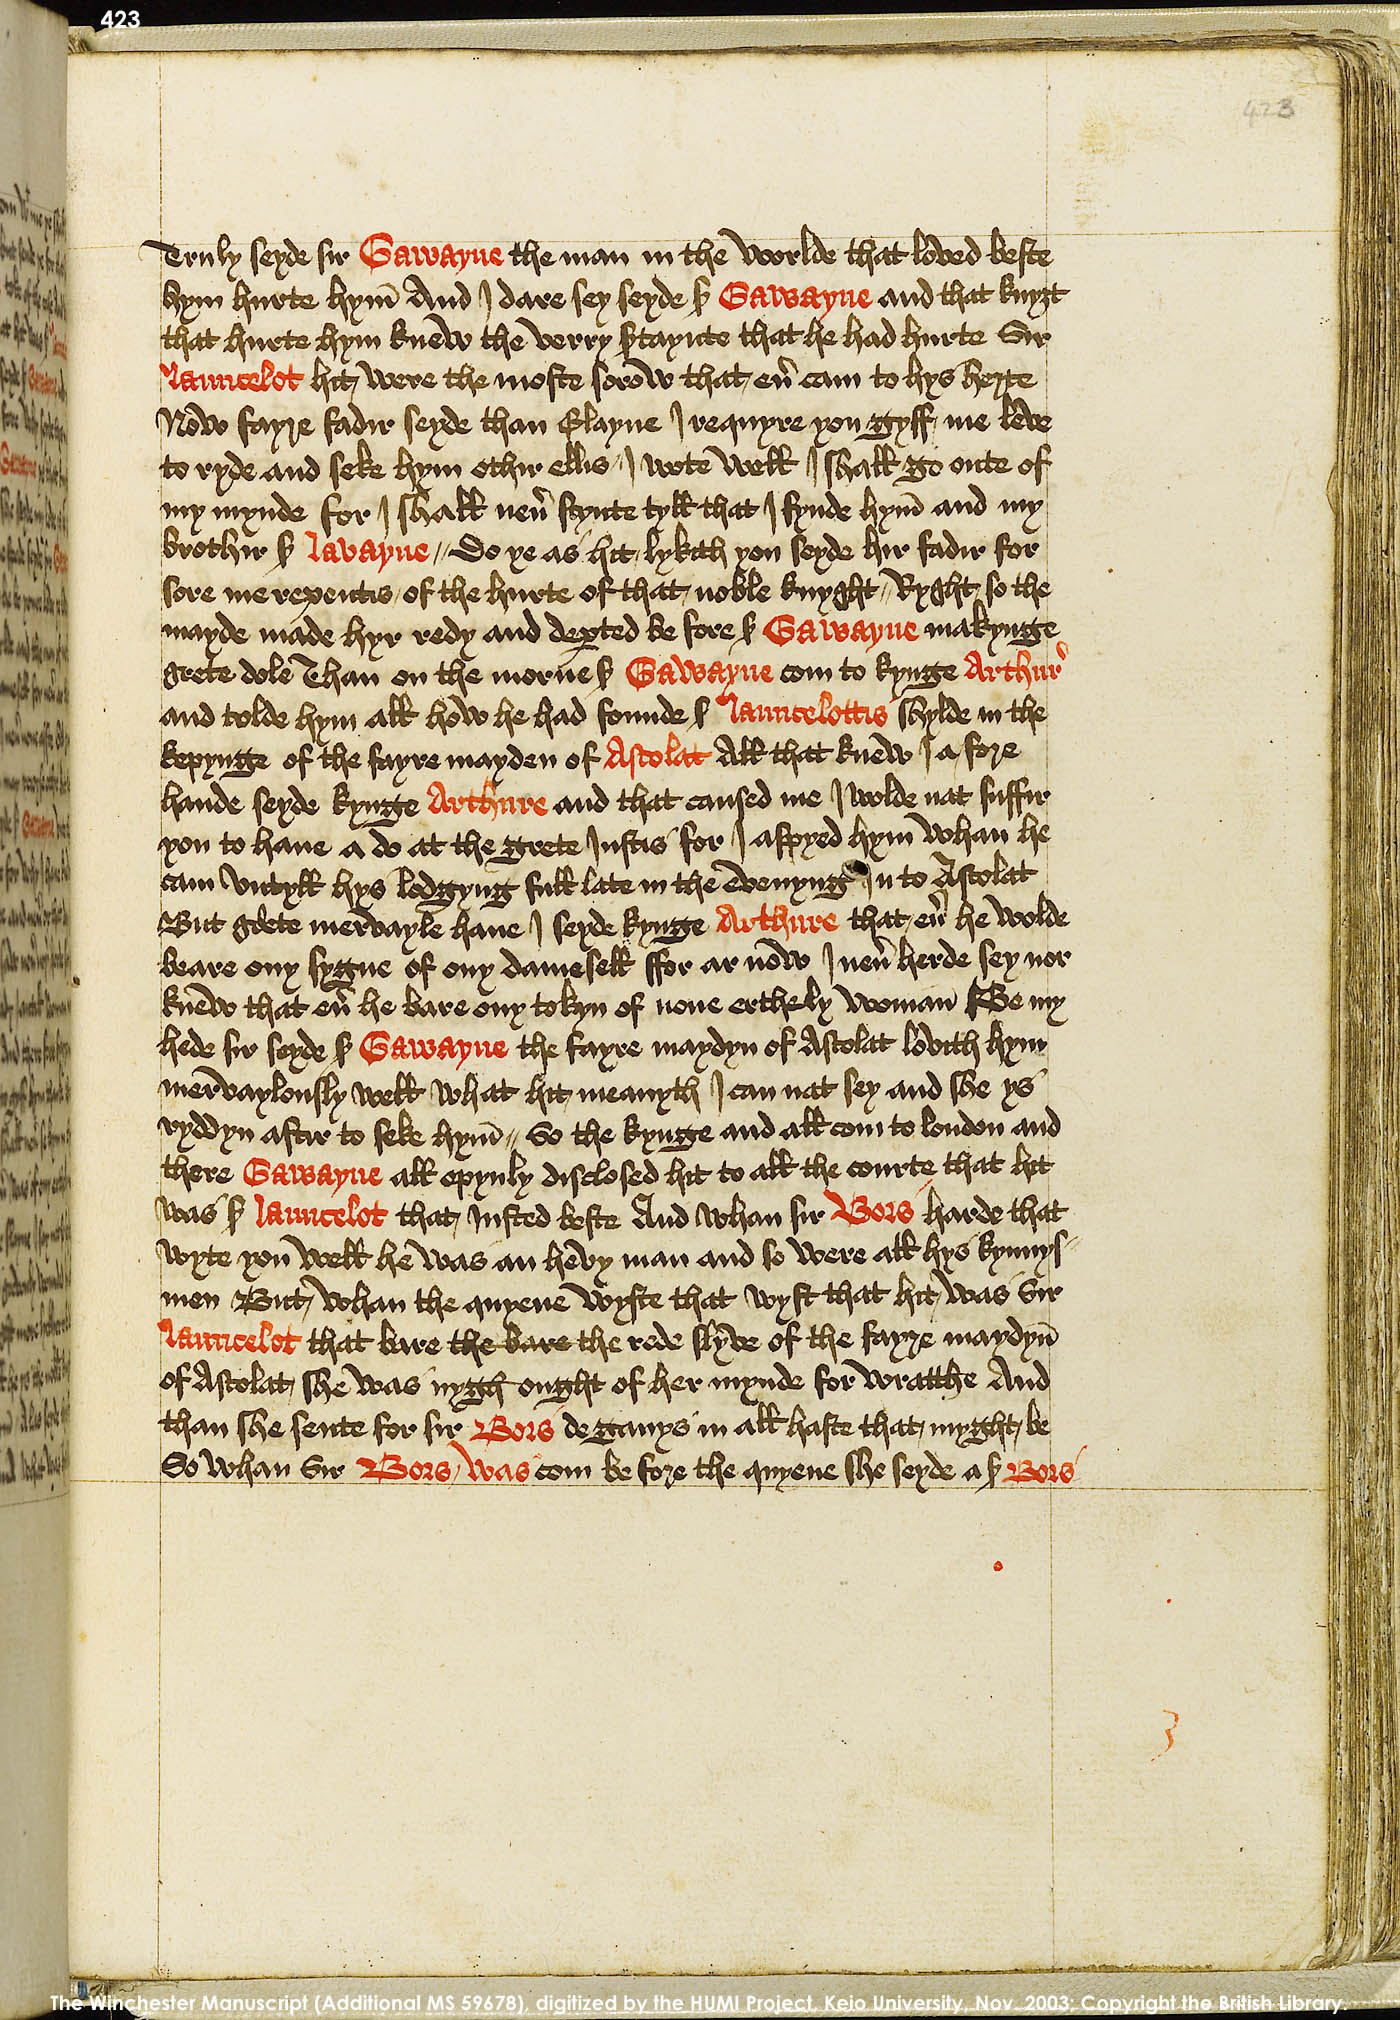 423
423
Truly seyde sir Gawayne the man in the worlde that loved beste
hym hurte hym̄ And I dare sey seyde ẜ Gawayne and that knyȝt
that hurte hym knew the verry ẜtaynte that he had hurte Sir
Launcelot hit were the moste sorow that eũ cam to hys herte
Now fayre fadir seyde than Elayne I requyre you gyff me leve
to ryde and seke hym othir ellis I wote well I shall go oute of
my mynde for I shall neũ stynte tyll that I fynde hym̄ and my
brothir ẜ Lavayne // Do ye as hit lykith you seyde hir fadir for
sore me repentis of the hurte of that noble knyght // Ryght so the
mayde made hyr redy and dep̱ted be fore ẜ Gawayne makynge
grete dole Than on the morne ẜ Gawayne com to kynge Arthur̃
and tolde hym all how he had founde ẜ Launcelottis shylde in the
kepynge of the fayre mayden of Astolat All that knew I a fore
hande seyde kynge Arthure and that caused me I wolde nat suffir
you to have a do at the grete Justis for I aspyed hym whan he
cam untyll hys lodgyng full late in the evenyng In to Astolat
But grete mervayle have I seyde kynge Arthure that eũ he wolde
beare ony sygne of ony damesell ffor ar now I neũ herde sey nor
knew that eũ he bare ony tokyn of none erthely woman̄ Be my
hede sir seyde ẜ Gawayne the fayre maydyn of Astolat lovith hym
mervaylously well what hit meanyth I can nat sey and she ys
ryddyn aftir to seke hym̄ // So the kynge and all com to london and
there Gawayne all opynly disclosed hit to all the courte that hit
was ẜ Launcelot that Justed beste And whan sir Bors harde that
wyte you well he was an hevy man and so were all hys kynnys
men But whan the quyene wyste that wyst that hit was Sir
Launcelot that bare the bare the rede slyve of the fayre maydyn̄
of Astolat she was nygh ought of her mynde for wratthe And
than she sente for sir Bors de ganys in all haste that myght be
So whan Sir Bors was com be fore the quyene she seyde a ẜ Bors
The Winchester Manuscript (Additional MS 59678), digitized by the HUMI Project, Keio University, Nov. 2003; Copyright the British Library.